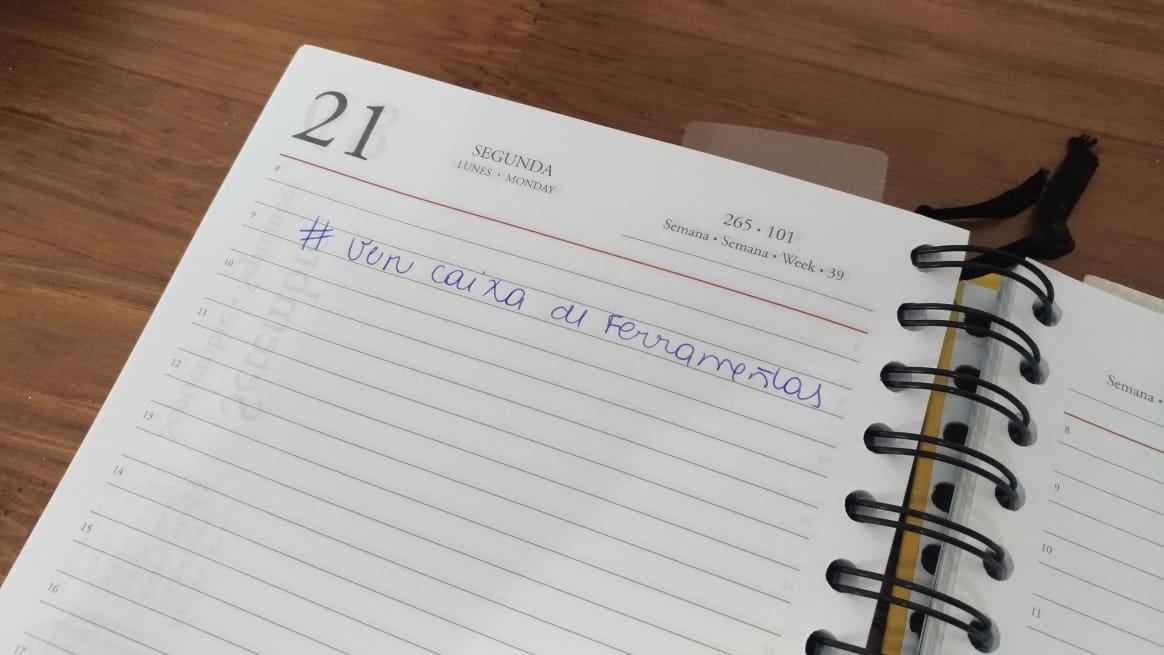 21
SEGUNDA
LUNES • MONDAY
265 • 101
Semana • Semana • Week • 39
8
9
# ver caixa de Ferramentas
10
11
12
13
14
15
16
17
Semana •
8
9
10
11